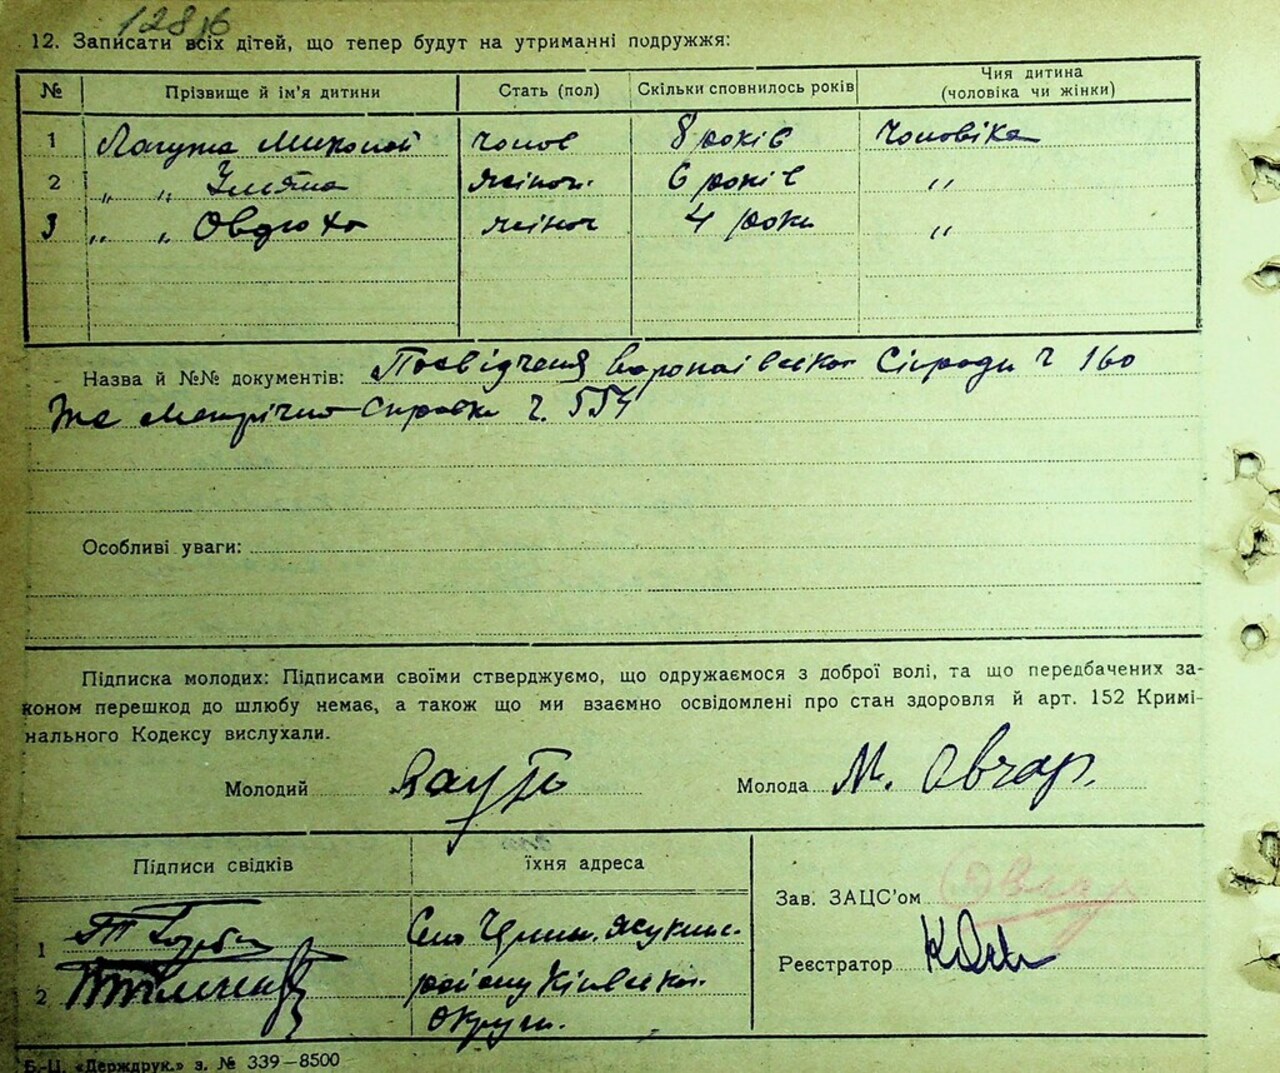 1286
12. Записати всіх дітей, що тепер будут на утриманні подружжя:
№ Прізвище й ім'я дитини Стать (пол) Скільки сповнилось років Чия дитина (чоловіка чи жінки)
1 Миколай чолов 8 років Чоловіка
2 „ „ Уляна жіноч. 6 років "
3 „ „ Овдюха жіноч 4 роки "
Назва й №№ документів: Посвідченя Сільради ч 160
та Метрична Справка ч. 554
Особливі уваги:
Підписка молодих: Підписами своїми стверджуємо, що одружаємося з доброї волі, та що передбачених за-
коном перешкод до шлюбу немає, а також що ми взаємно освідомлені про стан здоровля й арт. 152 Кримі-
нального Кодексу вислухали.
Молодий Молода М. Овчар.
Підписи свідків їхня адреса
Зав. ЗАЦС'ом Овчар
1 Село
Реєстратор
2 району Київської
Округи.
Б.-Ц. «Держдрук.» з. № 339—8500